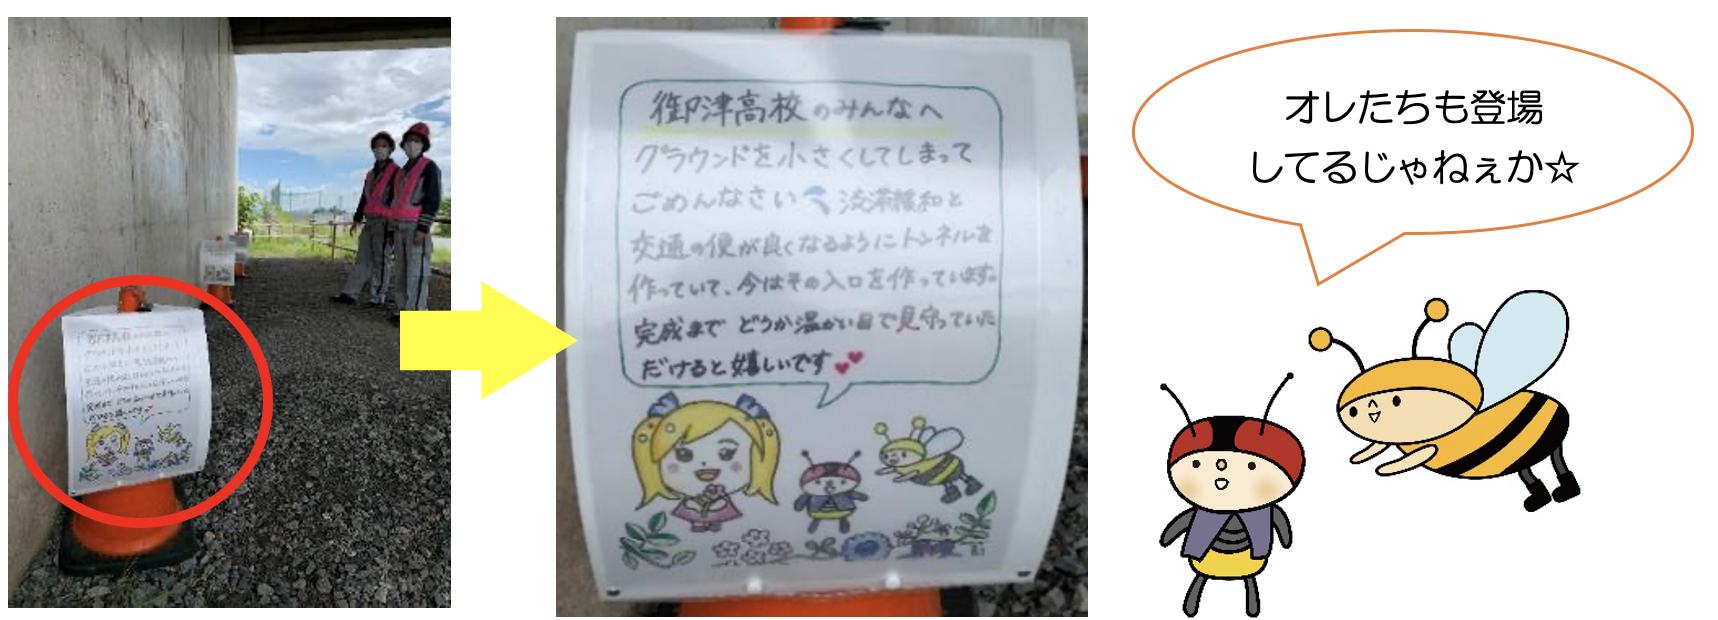 御津高校のみんなへ
グラウンドを小さくしてしまって
ごめんなさい 渋滞緩和と
交通の便が良くなるようにトンネルを
作っていて、今はその入口を作っています。
完成まで どうか温かい目で見守っていた
だけると嬉しいです
オレたちも登場
してるじゃねぇか☆